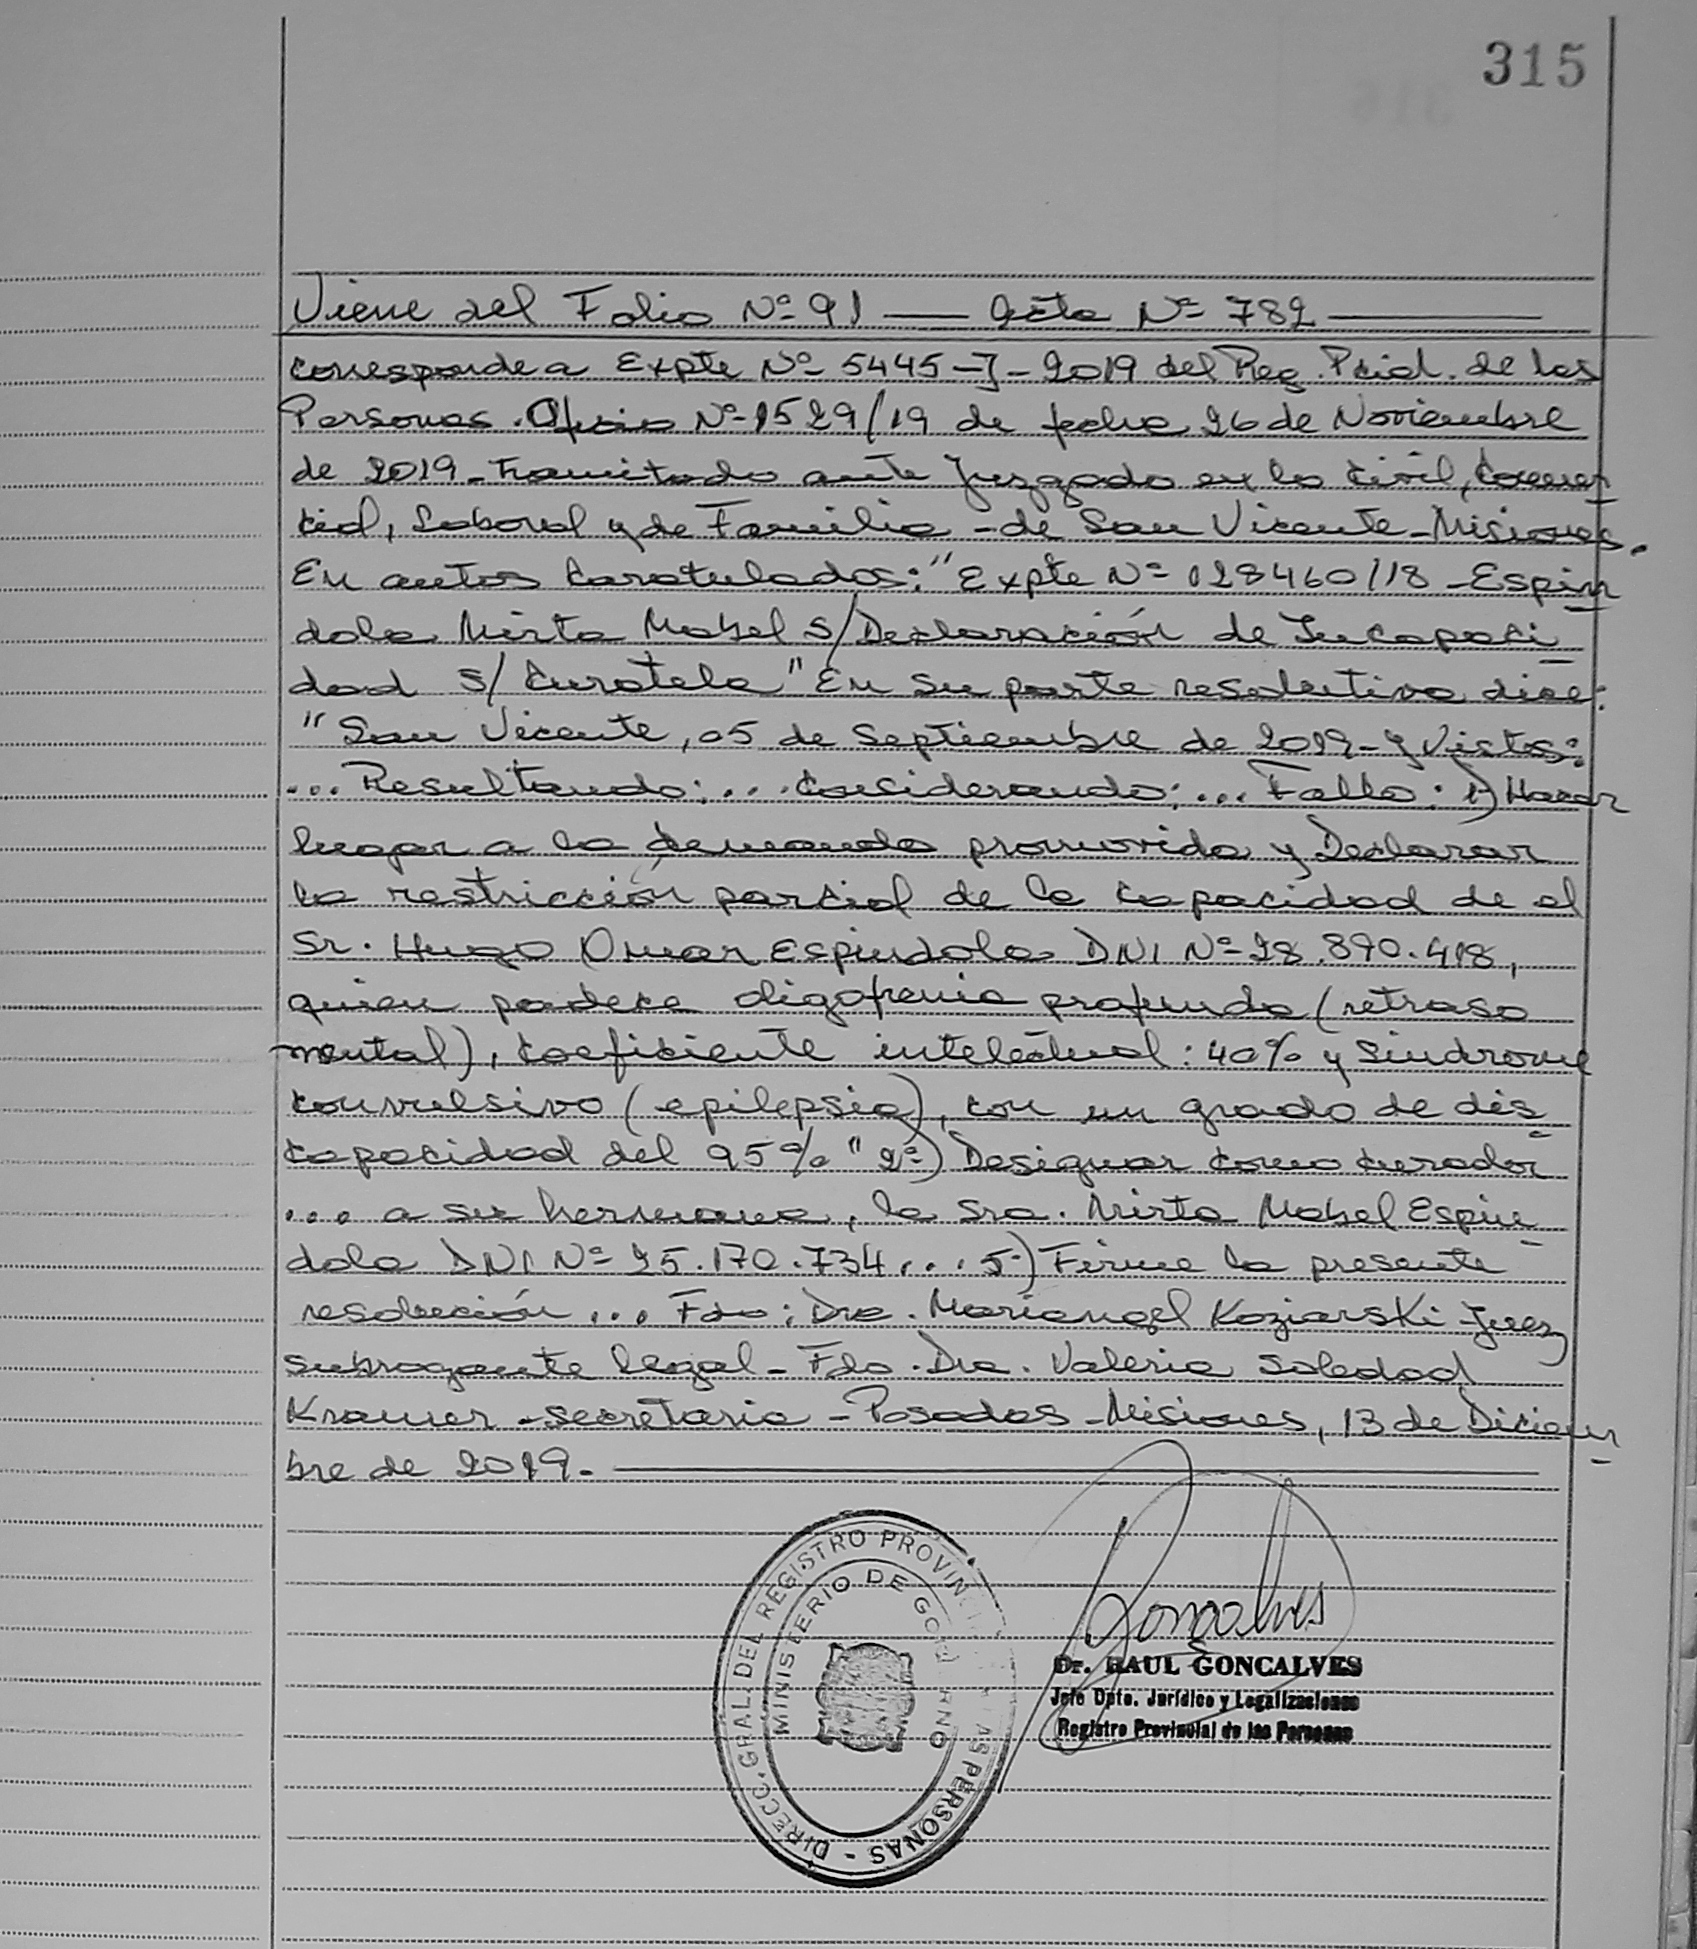 315
Viene del Folio Nº 91 — Acta Nº 782
corresponde a Expte Nº 5445-J-2019 del Reg. Pcial. de las
Personas. Oficio Nº 1529/19 de fecha 26 de Noviembre
de 2019. Tramitado ante Juzgado en lo Civil, Comer
cial, Laboral y de Familia - de San Vicente - Misiones.
En autos Caratulados: "Expte Nº 128460/18 - Espin
dola Mirta Mabel S/ Declaración de Incapaci
dad s/ Curatela" En su parte resolutiva dice:
"San Vicente, 05 de Septiembre de 2019 - y Vistos:
... Resultando: ... Considerando: ... Fallo: 1) Hacer
lugar a la demanda promovida y Declarar
la restricción parcial de la capacidad de el
Sr. Hugo Omar Espindola DNI Nº 28.890.418,
quien padece oligofrenia profunda (retraso
mental), coeficiente intelectual: 40% y Sindrome
convulsivo (epilepsia), con un grado de dis
capacidad del 95% " 2º) Designar como curador
... a su hermana, la Sra. Mirta Mabel Espin
dola DNI Nº 25.170.734 ... 5º) Firme la presente
resolución ... Fdo: Dra. Mariangel Koziarski - Juez
subrogante legal - Fdo. Dra. Valeria Soledad
Kramer - secretaria - Posadas - Misiones, 13 de Diciem
bre de 2019.
DIRECC. GRAL. DEL REGISTRO PROVINCIAL DE LAS PERSONAS -
MINISTERIO DE GOBIERNO
Gonçalves
Dr. RAUL GONCALVES
Jefe Dpto. Jurídico y Legalizaciones
Registro Provincial de las Personas